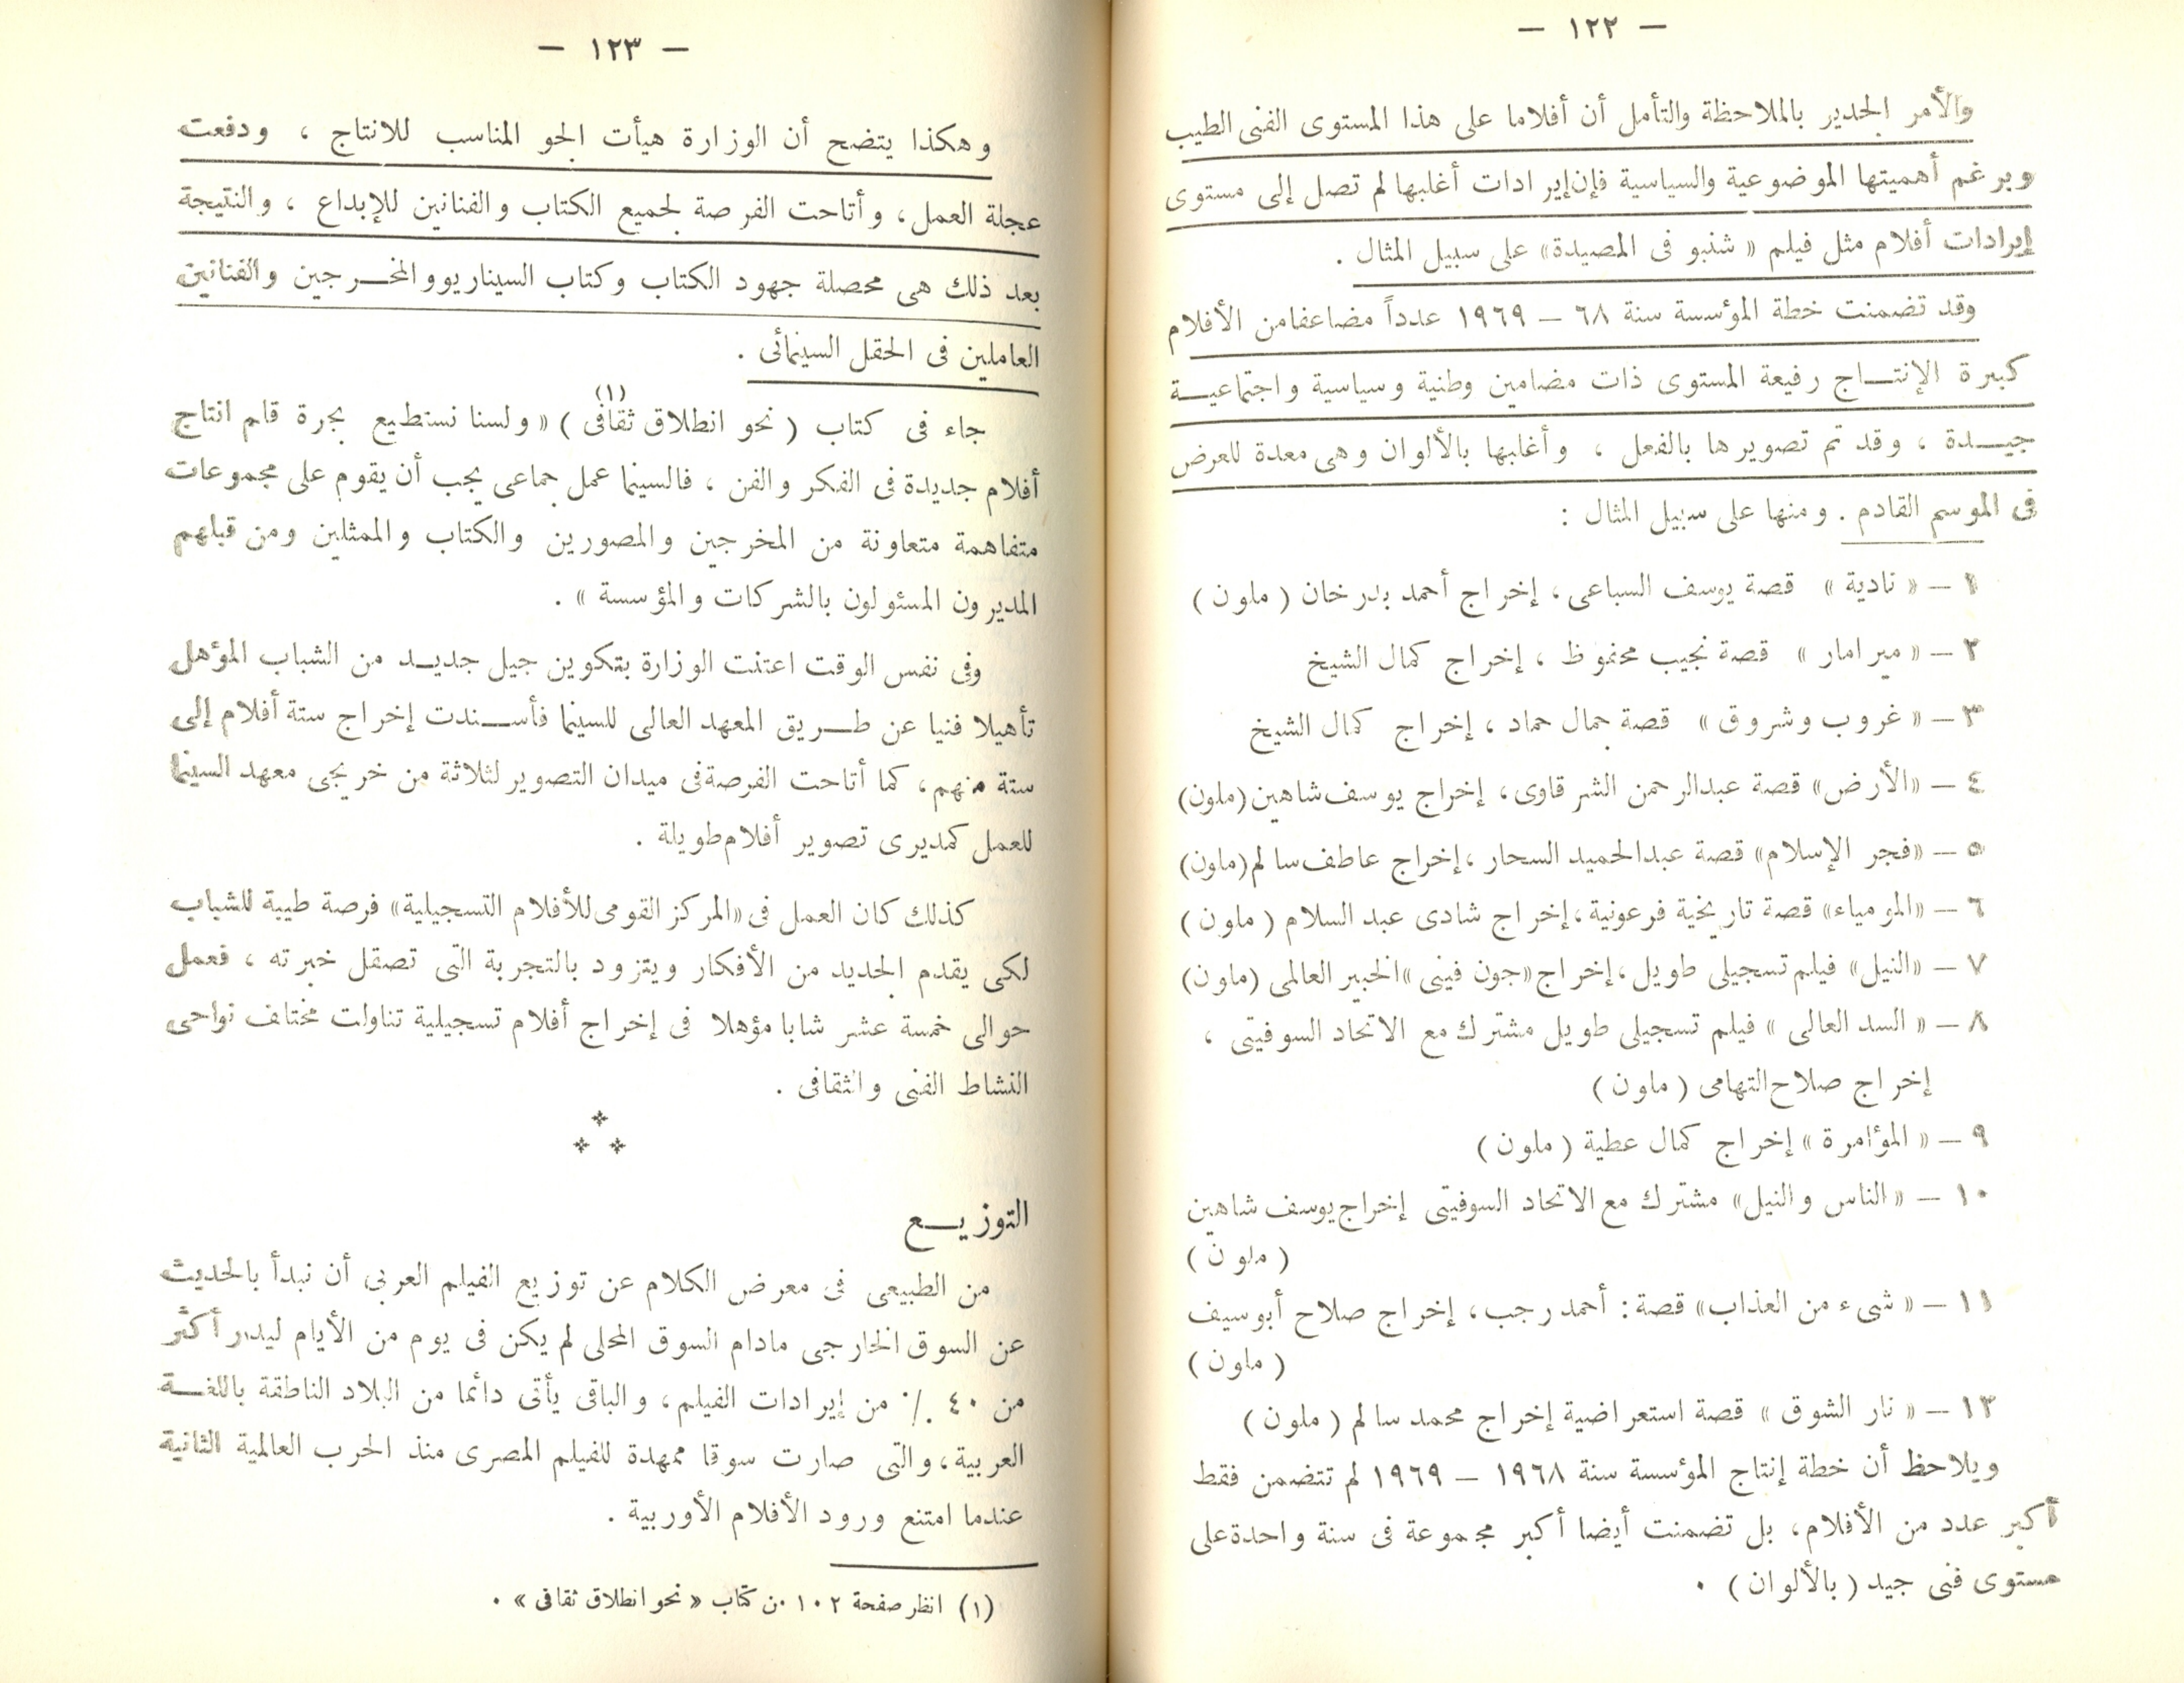 — ١٢٢ —
والأمر الجدير بالملاحظة والتأمل أن أفلاما على هذا المستوى الفنى الطيب
وبرغم أهميتها الموضوعية والسياسية فإن إيرادات أغلبها لم تصل إلى مستوى
إيرادات أفلام مثل فيلم « شنبو فى المصيدة » على سبيل المثال .
وقد تضمنت خطة المؤسسة سنة ٦٨ – ١٩٦٩ عدداً مضاعفا من الأفلام
كبيرة الإنتـاج رفيعة المستوى ذات مضامين وطنية وسياسية واجتماعيـة
جيـدة ، وقد تم تصويرها بالفعل ، وأغلبها بالألوان وهى معدة للعرض
فى الموسم القادم . ومنها على سبيل المثال :
١ – « نادية » قصة يوسف السباعى ، إخراج أحمد بدرخان ( ملون )
٢ – « ميرامار » قصة نجيب محفوظ ، إخراج كمال الشيخ
٣ – « غروب وشروق » قصة جمال حماد ، إخراج كمال الشيخ
٤ – «الأرض» قصة عبدالرحمن الشرقاوى، إخراج يوسف شاهين (ملون)
٥ – «فجر الإسلام» قصة عبدالحميد السحار ،إخراج عاطف سالم (ملون)
٦ – «المومياء» قصة تاريخية فرعونية ،إخراج شادى عبد السلام ( ملون )
٧ – «النيل» فيلم تسجيلى طويل ،إخراج «جون فينى» الخبير العالمى (ملون)
٨ – « السد العالى » فيلم تسجيلى طويل مشترك مع الاتحاد السوفيتى ،
إخراج صلاح التهامى ( ملون )
٩ – « المؤامرة » إخراج كمال عطية ( ملون )
١٠ – « الناس والنيل» مشترك مع الاتحاد السوفيتى إخراج يوسف شاهين
( ملون )
١١ – « شىء من العذاب» قصة : أحمد رجب، إخراج صلاح أبو سيف
( ملون )
١٣ – « نار الشوق » قصة استعراضية إخراج محمد سالم ( ملون )
ويلاحظ أن خطة إنتاج المؤسسة سنة ١٩٦٨ – ١٩٦٩ لم تتضمن فقط
أكبر عدد من الأفلام، بل تضمنت أيضا أكبر مجموعة فى سنة واحدة على
مستوى فنى جيد ( بالألوان ) .
— ١٢٣ —
وهكذا يتضح أن الوزارة هيأت الجو المناسب للانتاج ، ودفعت
عجلة العمل ، وأتاحت الفرصة لجميع الكتاب والفنانين للإبداع ، والنتيجة
بعد ذلك هى محصلة جهود الكتاب وكتاب السيناريو والمخـرجين والفنانين
العاملين فى الحقل السينمائى .
جاء فى كتاب ( نحو انطلاق ثقافى ) (١) « ولسنا نستطيع بجرة قلم انتاج
أفلام جديدة فى الفكر والفن ، فالسينما عمل جماعى يجب أن يقوم على مجموعات
متفاهمة متعاونة من المخرجين والمصورين والكتاب والممثلين ومن قبلهم
المديرون المسئولون بالشركات والمؤسسة » .
وفى نفس الوقت اعتنت الوزارة بتكوين جيل جديـد من الشباب المؤهل
تأهيلا فنيا عن طـريق المعهد العالى للسينما فأسـندت إخراج ستة أفلام إلى
ستة منهم ، كما أتاحت الفرصة فى ميدان التصوير لثلاثة من خريجى معهد السينما
للعمل كمديرى تصوير أفلام طويلة .
كذلك كان العمل فى «المركز القومى للأفلام التسجيلية» فرصة طيبة للشباب
لكى يقدم الجديد من الأفكار ويتزود بالتجربة التى تصقل خبرته ، فعمل
حوالى خمسة عشر شابا مؤهلا فى إخراج أفلام تسجيلية تناولت مختلف نواحى
النشاط الفنى والثقافى .
التوزيـع
من الطبيعى فى معرض الكلام عن توزيع الفيلم العربى أن نبدأ بالحديث
عن السوق الخارجى مادام السوق المحلى لم يكن فى يوم من الأيام ليدر أكثر
من ٤٠ ٪ من إيرادات الفيلم ، والباقى يأتى دائما من البلاد الناطقة باللغـة
العربية ، والتى صارت سوقا ممهدة للفيلم المصرى منذ الحرب العالمية الثانية
عندما امتنع ورود الأفلام الأوربية .
(١) انظر صفحة ١٠٢ من كتاب « نحو انطلاق ثقافى » .